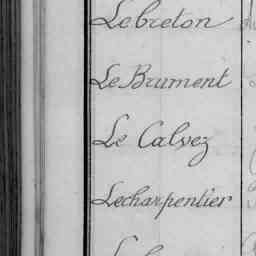 Lebreton
Le Brument
Le Calvez
Lecharpentier